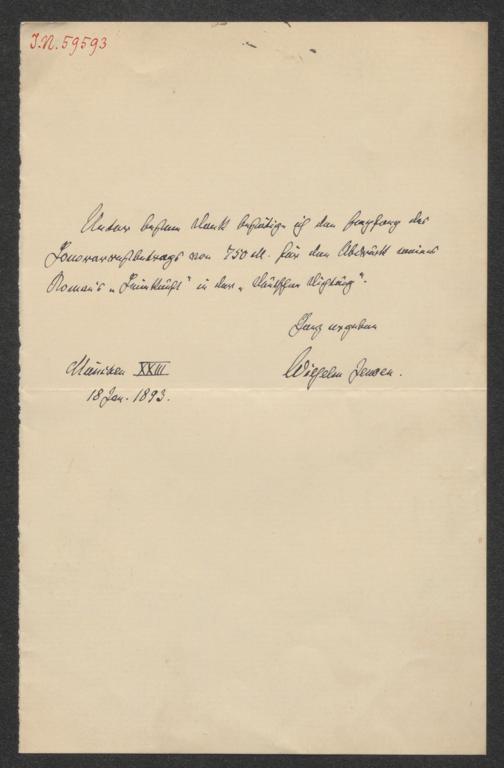 J.N. 59593
Unter bestem Dank bestätige ich den Empfang des
Honorarrestbetrags von 750 M. für den Abdruck meines
Roman's „Heimkunft“ in der „Deutschen
Ganz ergeben
Wilhelm Jensen.
München XXIII
18 Jan. 1893.